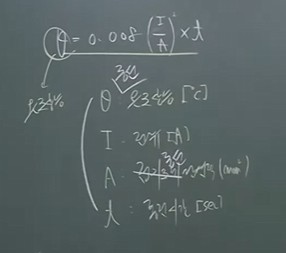 θ = 0.008 (I/A)² × t
온도상승
동선
θ : 온도상승 [℃]
I : 전류 [A]
A : 동선 단면적 (mm²)
t : 통전시간 [sec]